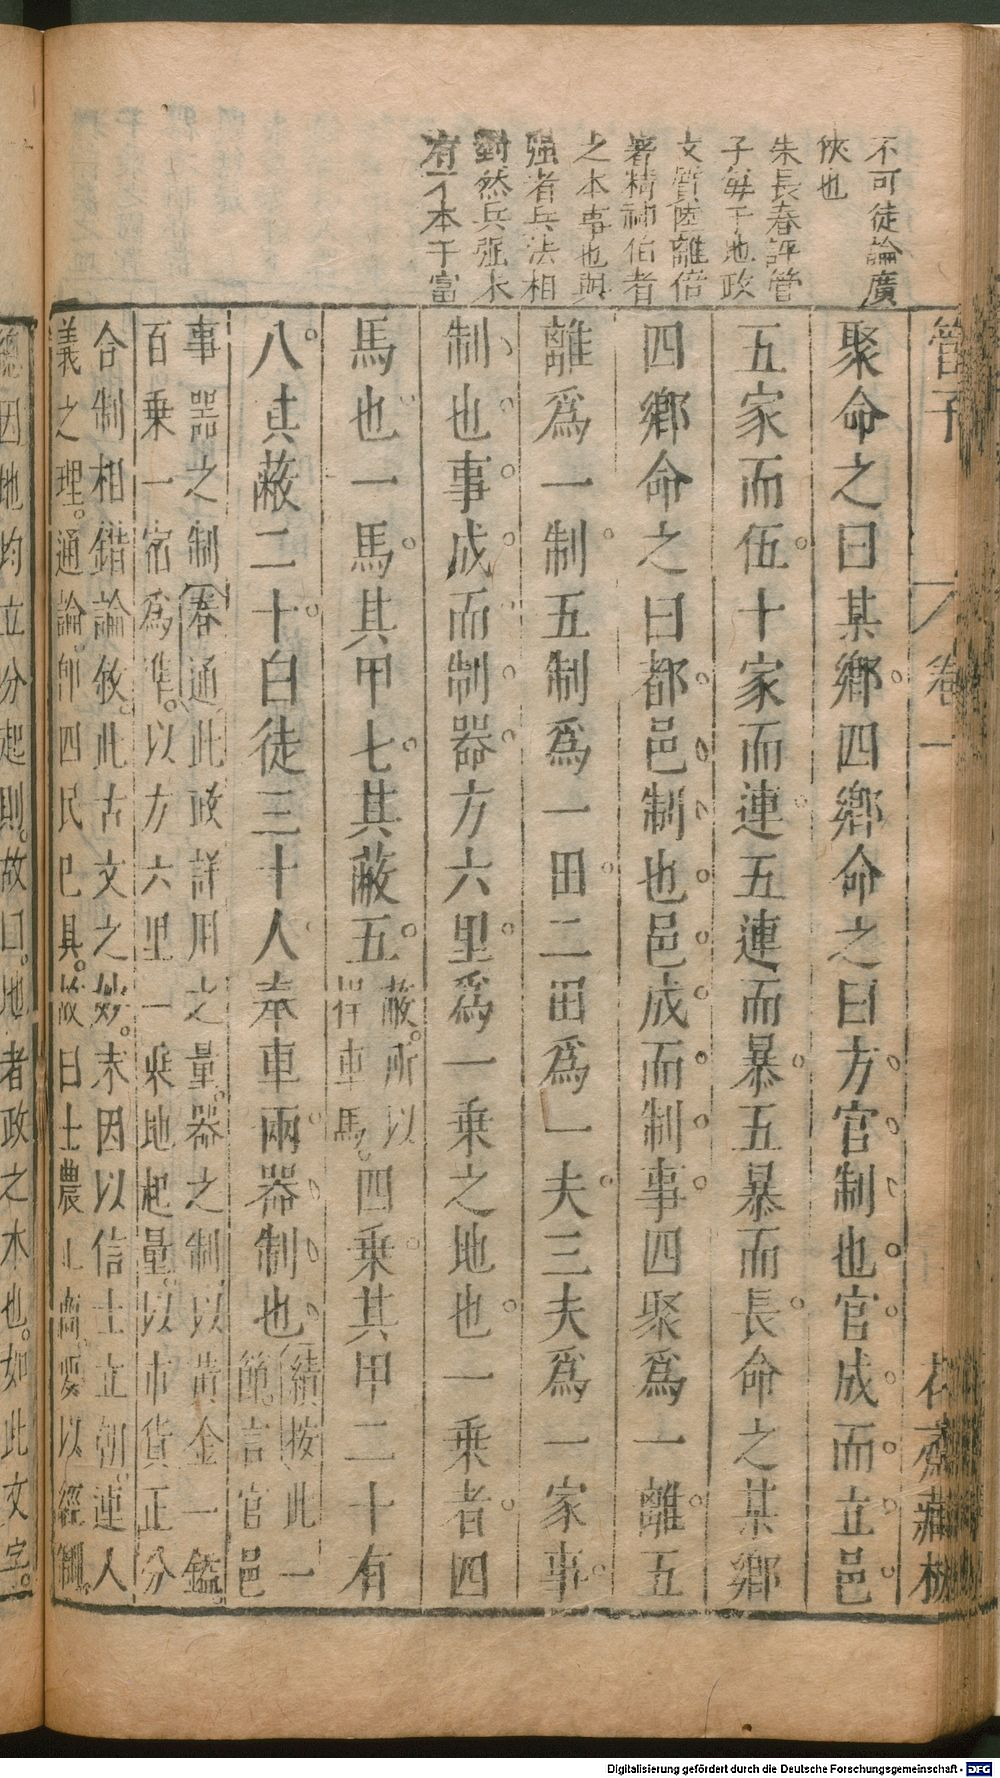 不可徒論廣
俠也
朱長春評管
子每于地政
文質陸離倍
著精神伯者
之本事也與
强者兵法相
對然兵强水
有一本于富
管子
卷一
花齋藏板
聚命之曰某鄉四鄉命之曰方官制也官成而立邑
五家而伍十家而連五連而暴五暴而長命之某鄉
四鄉命之曰都邑制也邑成而制事四聚爲一離五
離爲一制五制爲一田二田爲一夫三夫爲一家事
制也事成而制器方六里爲一乘之地也一乘者四
馬也一馬其甲七其蔽五蔽。所以捍車馬。四乘其甲二十有
八其蔽二十白徒三十人奉車兩器制也績按此一節。言官邑
事器之制春通此政詳用之量。器之制以黃金一鎰。
百乘一宿爲準。以方六里一乘地起量。以市貨正分
合制相錯論敘。此古文之妙。末因以信士立朝。連人
義之理。通論。卽四民已具。故曰士農工商。要以經制。
總因地均立分起則。故曰。地者政之本也。如此文字。
Digitalisierung gefördert durch die Deutsche Forschungsgemeinschaft - DFG